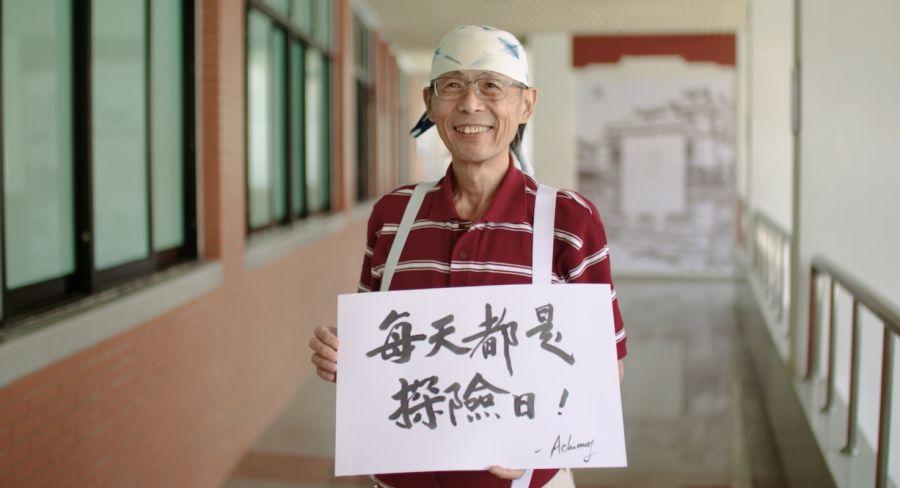 每天都是
探險日！
- Achung